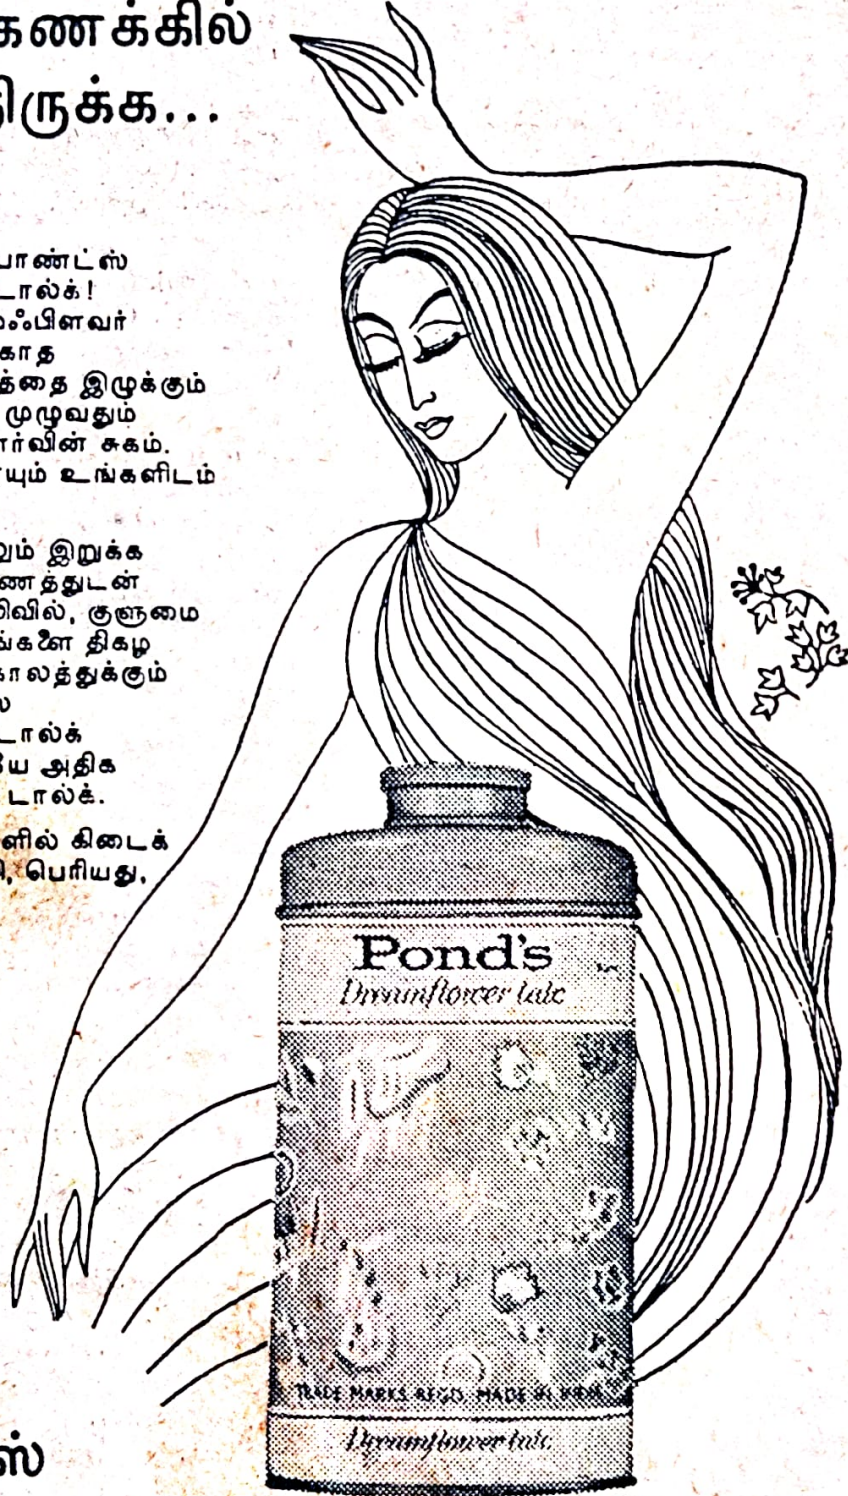 கணக்கில்
திருக்க...
பாண்ட்ஸ்
டால்க்!
ம்ஃபிளவர்
காத
த்தை இழுக்கும்
முழுவதும்
ர்வின் சுகம்.
யும் உங்களிடம்
வும் இறுக்க
ணத்துடன்
ளிவில், குளுமை
ங்களை திகழ
காலத்துக்கும்
ல
டால்க்
யே அதிக
டால்க்.
ளில் கிடைக்
பெரியது,
Pond's
Dreamflower talc
TRADE MARKS REGD. MADE IN INDIA
Dreamflower talc
ஸ்